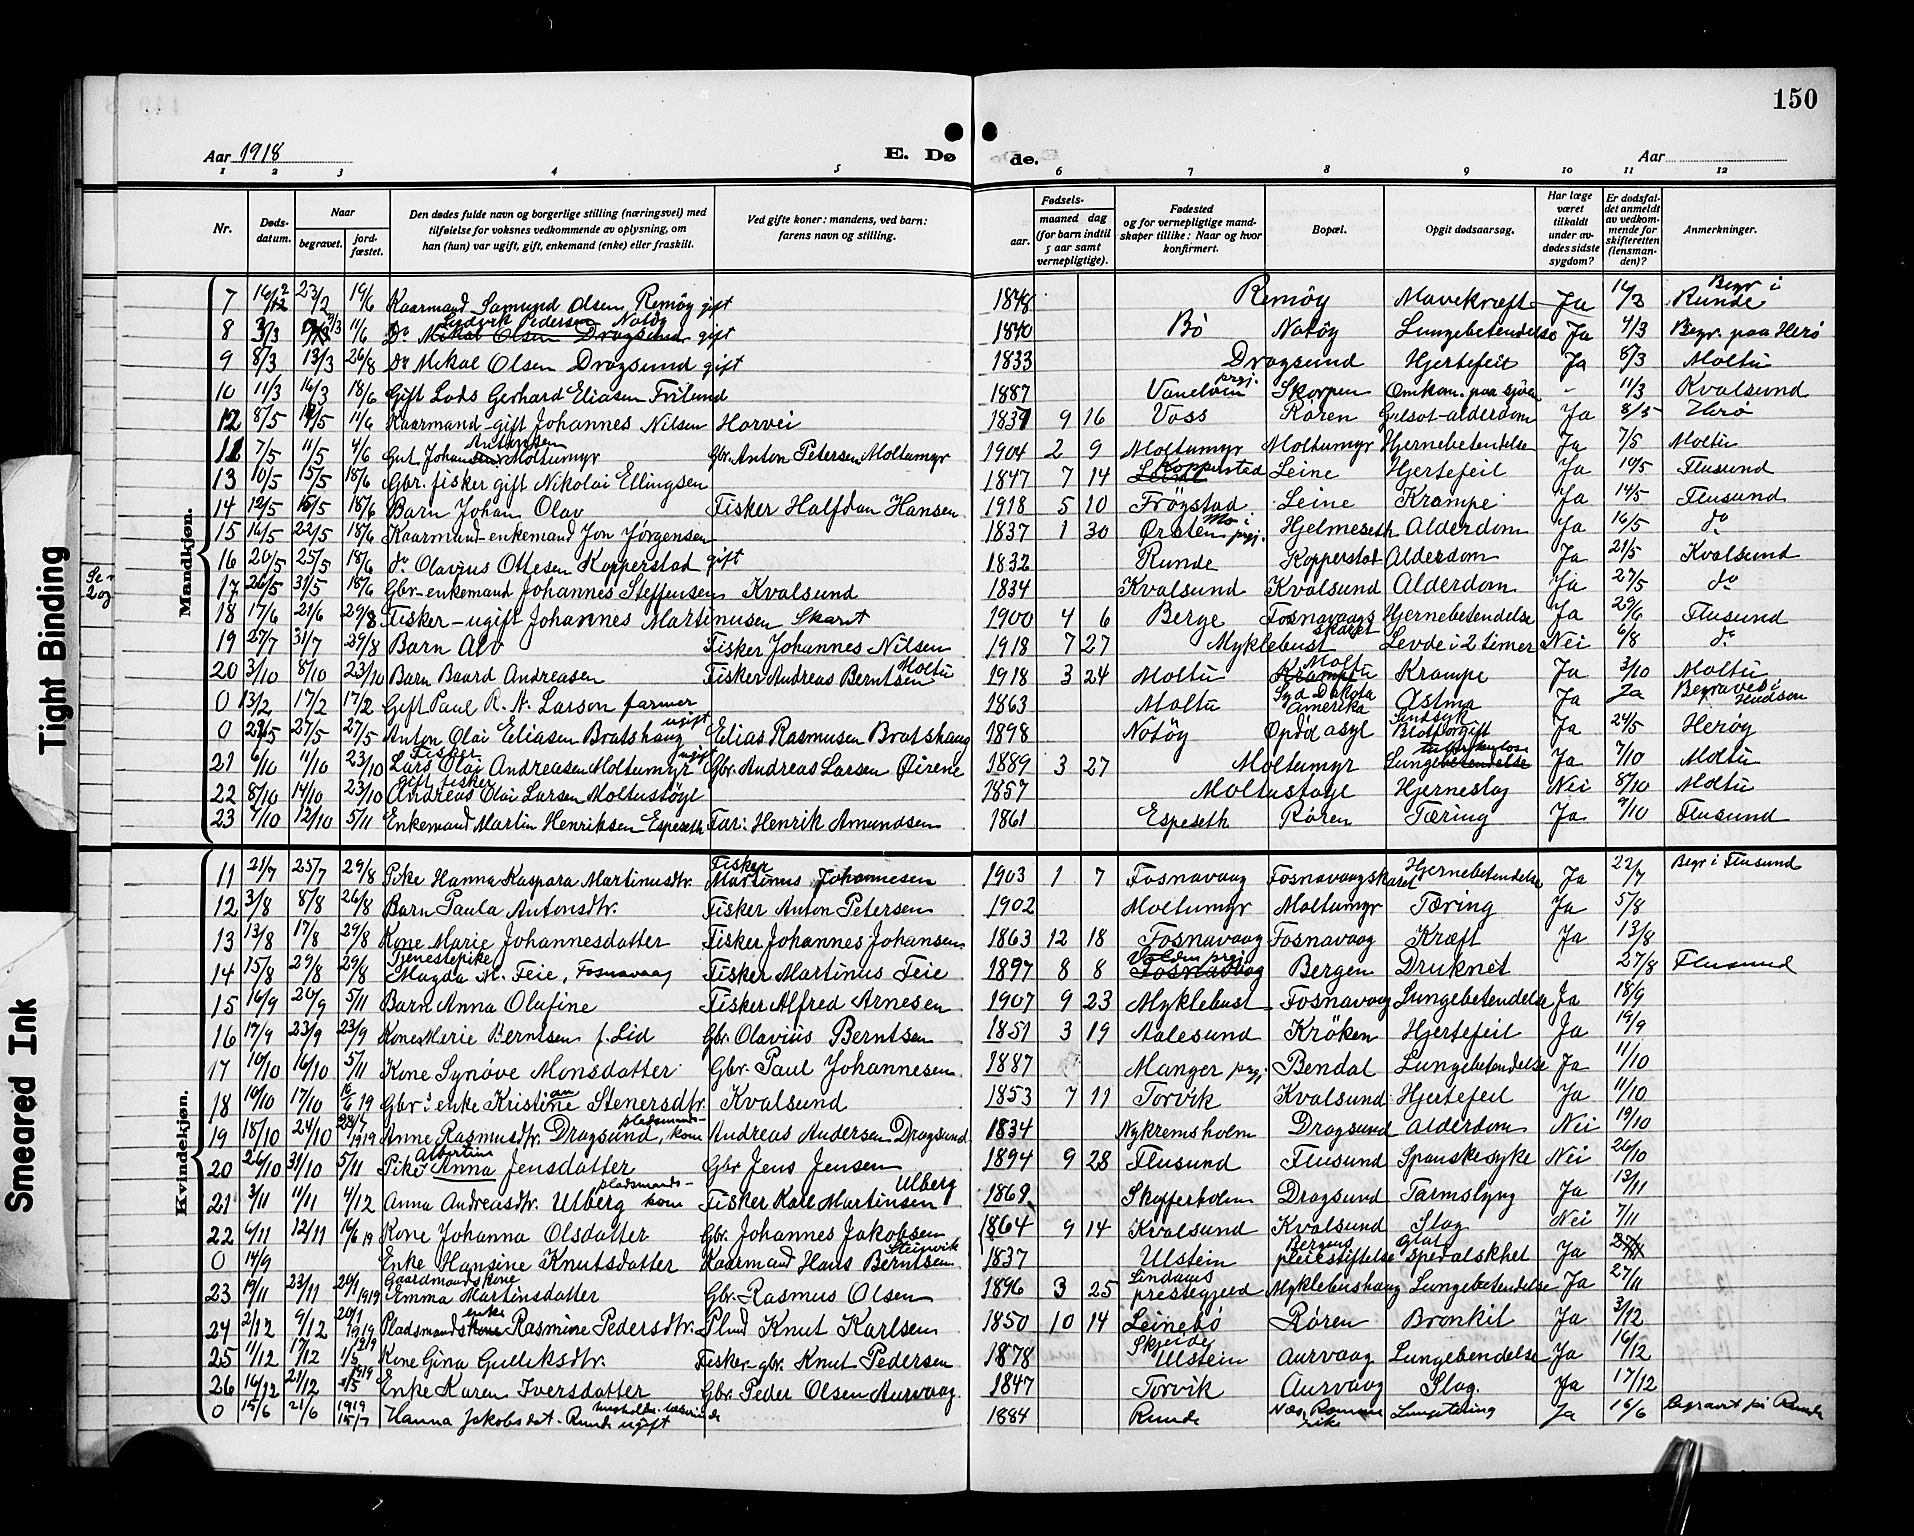 150
Aar 1918
E. Dø de.
Aar
1 2 3 4 5 6 7 8 9 10 11 12
Nr.
Døds-datum.
Naar
begravet.
jord-fæstet.
Den dødes fulde navn og borgerlige stilling (næringsvei) med tilføielse for voksnes vedkommende av oplysning, om han (hun) var ugift, gift, enkemand (enke) eller fraskilt.
Ved gifte koner: mandens, ved barn: farens navn og stilling.
Fødsels-
aar.
maaned dag
(for barn indtil 5 aar samt vernepligtige).
Fødested og for vernepligtige mand-skaper tillike: Naar og hvor konfirmert.
Bopæl.
Opgit dødsaarsag.
Har læge været tilkaldt under av-dødes sidste sygdom?
Er dødsfal-det anmeldt av vedkom-mende for skifteretten (lensman-den)?
Anmerkninger.
Mandkjøn.
7 16/2 23/2 19/6 Kaarmand Samund Olsen Remøy gift 1848 Remøy Mavekræft Ja 16/3 Begr i Runde
8 3/3 9/3 11/6 Do Ludvik Pedersen Notøy gift 1840 Bø Notøy Lungebetendelse Ja 4/3 Begr. paa Herø
9 8/3 13/3 26/8 Do Mikal Olsen Dragsund gift 1833 Dragsund Hjertefeil Ja 8/3 Moltu
10 11/3 16/3 18/6 Gift Lods Gerhard Eliasen Frilund 1887 Vanelven prgj. Skorpen Omkom. paa sjøen - 11/3 Kvalsund
12 8/5 11/6 Kaarmand gift Johannes Nilsen Horvei 1837 9 16 Voss Røren Gulsot-alderdom Ja 8/5 Herø
11 7/5 11/5 4/6 Gut Johan Antonsen Moltumyr Gbr. Anton Petersen Moltumyr 1904 2 9 Moltumyr Moltumyr Hjernebetendelse Ja 7/5 Moltu
13 10/5 15/5 18/6 Gbr. fisker gift Nikolai Ellingsen 1847 7 14 Kopperstad Leine Hjertefeil Ja 10/5 Flusund
14 12/5 16/5 18/6 Barn Johan Olav Fisker Halfdan Hansen 1918 5 10 Frøystad Leine Krampe Ja 14/5 Flusund
15 16/5 22/5 18/6 Kaarmand-enkemand Jon Jørgensen 1837 1 30 Mo i Ørsten prgj. Hjelmeseth Alderdom Ja 16/5 do
16 20/5 25/5 18/6 do Olavius Ottesen Kopperstad gift 1832 Runde Kopperstad Alderdom Ja 21/5 Kvalsund
17 26/5 31/5 18/6 Gbr-enkemand Johannes Steffensen Kvalsund 1834 Kvalsund Kvalsund Alderdom Ja 27/5 do
18 17/6 21/6 29/8 Fisker-ugift Johannes Martinusen Skaret 1900 4 6 Berge Fosnavaags skaret Hjernebetendelse Ja 29/6 Flusund
19 27/7 31/7 29/8 Barn Alv Fisker Johannes Nilsen 1918 7 27 Myklebust Levde i 2 timer Nei 6/8 do
20 3/10 8/10 23/10 Barn Baard Andreasen Fisker Andreas Berntsen Moltu 1918 3 24 Moltu Moltu Krampe Ja 3/10 Moltu
0 13/2 17/2 17/2 Gift Paul R. N. Larson farmer 1863 Moltu Syd Dakota Amerika Astma Ja Ja Begravet i Hudson
0 27/5 27/5 Anton Olai Eliasen Bratshaug ugift Elias Rasmusen Bratshaug 1898 Notøy Opdøl asyl Sindsyk Blodforgift Ja 24/5 Herøy
21 6/10 11/10 23/10 Fisker Lars Olai Andreasen Moltumyr ugift Gbr. Andreas Larsen Øirene 1889 3 27 Moltumyr Lungetuberkulose Ja 7/10 Moltu
22 8/10 14/10 23/10 gift fisker Andreas Olai Larsen Moltustøyl 1857 Moltustøyl Hjerneslag Nei 8/10 Moltu
23 7/10 12/10 5/11 Enkemand Martin Henriksen Espeseth Far: Henrik Amundsen 1861 Espeseth Røren Tæring Ja 9/10 Flusund
Kvindekjøn.
11 21/7 25/7 29/8 Pike Hanna Kaspara Martinusdtr. Fisker Martinus Johannesen 1903 1 7 Fosnavaag Fosnavaagskaret Hjernebetendelse Ja 22/7 Begr i Flusund
12 3/8 8/8 26/8 Barn Paula Antonsdtr. Fisker Anton Petersen 1902 Moltumyr Moltumyr Tæring Ja 5/8
13 13/8 17/8 29/8 Kone Marie Johannesdatter Fisker Johannes Johansen 1863 12 18 Fosnavaag Fosnavaag Kræft Ja 13/8
14 15/8 29/8 29/8 Tjenestepike Magda M. Teie, Fosnavaag Fisker Martinus Teie 1897 8 8 Volden prgj Bergen Druknet 27/8 Flusund
15 16/9 20/9 5/11 Barn Anna Olufine Fisker Alfred Arnesen 1907 9 23 Myklebust Fosnavaag Lungebetendelse Ja 18/9
16 17/9 23/9 23/9 Kone Marie Berntsen f. Lid Gbr. Olavius Berntsen 1851 3 19 Aalesund Krøken Hjertefeil Ja 19/9
17 10/10 16/10 5/11 Kone Synøve Monsdatter Gbr. Paul Johannesen 1887 Manger prgj Bendal Lungebetendelse Ja 11/10
18 10/10 17/10 16/6 19 Gbr: enke Kristiane Stenersdtr. Kvalsund 1853 7 11 Torvik Kvalsund Hjertefeil Ja 11/10
19 18/10 24/10 1919 Anne Rasmusdtr. Dragsund, pladsmands-kone Andreas Andersen Dragsund 1834 Nykremsholm Dragsund Alderdom Nei 19/10
20 26/10 31/10 5/11 Pike Albertine Anna Jensdatter Gbr Jens Jensen 1894 9 28 Flusund Flusund Spanskesyke Nei 26/10
21 3/11 11/11 4/12 Anna Andreasdtr. Ulberg pladsmands-kone Fisker Karl Martinsen Ulberg 1869 Skotterholm Dragsund Tarmslyng Ja 13/11
22 6/11 12/11 16/6 19 Kone Johanna Olsdatter Gbr. Johannes Jakobsen 1864 9 14 Kvalsund Kvalsund Slag Nei 7/11
0 14/9 Enke Hansine Knutsdatter Kaarmand Hans Berntsen Steinvik 1837 Ulstein Bergens pleiestiftelse Glat spedalskhet Ja
23 19/11 23/11 20/1 1919 Gaardmandskone Emma Martinsdatter Gbr. Rasmus Olsen 1896 3 25 Lindaas prestegjeld Myklebusthaug Lungebetendelse Ja 27/11
24 2/12 9/12 20/1 1919 Pladsmands enke Rasmine Pedersdtr. Plmd Knut Karlsen 1850 10 14 Leinebø Røren Bronkit Ja 3/12
25 11/12 17/12 1/5 1919 Kone Gina Gulliksdtr. Fisker-gbr. Knut Pedersen 1878 Skjeide Ulstein Aurvaag Lungebendelse Ja 16/12
26 16/12 21/12 1/5 1919 Enke Karen Iversdatter Gbr. Peder Olsen Aurvaag. 1847 Torvik Aurvaag Slag. Ja 17/12
0 15/6 21/6 1919 15/7 Hanna Jakobsdat. Runde ugift 1884 Runde Nes, Romerike Lungetæring Ja 16/6 Begravet på Runde
Tight Binding
Smeared Ink